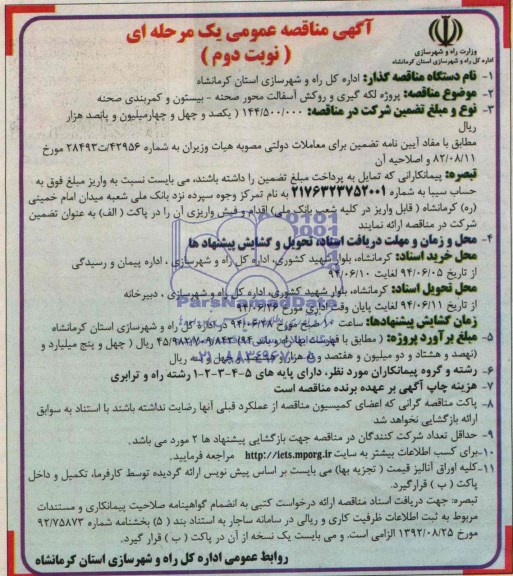 آگهی مناقصه عمومی یک مرحله ای
( نوبت دوم )
وزارت راه و شهرسازی
اداره کل راه و شهرسازی استان کرمانشاه
۱- نام دستگاه مناقصه گذار: اداره کل راه و شهرسازی استان کرمانشاه
۲- موضوع مناقصه: پروژه لکه گیری و روکش آسفالت محور صحنه - بیستون و کمربندی صحنه
۳- نوع و مبلغ تضمین شرکت در مناقصه: ۱۴۴/۵۰۰/۰۰۰ ( یکصد و چهل و چهارمیلیون و پانصد هزار
ریال
مطابق با مفاد آیین نامه تضمین برای معاملات دولتی مصوبه هیات وزیران به شماره ۴۲۹۵۶/ت۲۸۴۹۳ مورخ
۸۲/۰۸/۱۱ و اصلاحیه آن
تبصره: پیمانکارانی که تمایل به پرداخت مبلغ تضمین را داشته باشند، می بایست نسبت به واریز مبلغ فوق به
حساب سیبا به شماره ۲۱۷۶۳۲۳۷۵۲۰۰۱ به نام تمرکز وجوه سپرده نزد بانک ملی شعبه میدان امام خمینی
(ره) کرمانشاه ( قابل واریز در کلیه شعب بانک ملی) اقدام و فیش واریزی آن را در پاکت ( الف) به عنوان تضمین
شرکت در مناقصه ارائه نمایند
۴- محل و زمان و مهلت دریافت اسناد، تحویل و گشایش پیشنهاد ها
محل خرید اسناد: کرمانشاه، بلوار شهید کشوری، اداره کل راه و شهرسازی ، اداره پیمان و رسیدگی
از تاریخ ۹۴/۰۶/۰۵ لغایت ۹۴/۰۶/۱۰
محل تحویل اسناد: کرمانشاه، بلوار شهید کشوری، اداره کل راه و شهرسازی ، دبیرخانه
از تاریخ ۹۴/۰۶/۱۱ لغایت پایان وقت اداری مورخ ۹۴/۰۶/۲۶
زمان گشایش پیشنهادها: ساعت ۱۰ صبح مورخ ۹۴/۰۶/۲۸ در اداره کل راه و شهرسازی استان کرمانشاه
۵- مبلغ برآورد پروژه: ( مطابق با فهرست بهاء راه و باند ۹۴) ۴۵/۹۸۲/۷۰۹/۸۴۳ ریال ( چهل و پنج میلیارد و
نهصد و هشتاد و دو میلیون و هفتصد و هزار و سه ریال
۶- رشته و گروه پیمانکاران مورد نظر، دارای پایه های ۵-۴-۳-۲-۱ رشته راه و ترابری
۷- هزینه چاپ آگهی بر عهده برنده مناقصه است
۸- پاکت مناقصه گرانی که اعضای کمیسیون مناقصه از عملکرد قبلی آنها رضایت نداشته باشند با استناد به سوابق
ارائه بازگشایی نخواهد شد
۹- حداقل تعداد شرکت کنندگان در مناقصه جهت بازگشایی پیشنهاد ها ۲ مورد می باشد.
۱۰- برای کسب اطلاعات بیشتر به سایت http://iets.mporg.ir مراجعه فرمایید.
۱۱- کلیه اوراق آنالیز قیمت ( تجزیه بها) می بایست بر اساس پیش نویس ارائه گردیده توسط کارفرما، تکمیل و داخل
پاکت ( ب ) قرارگیرد.
تبصره: جهت دریافت اسناد مناقصه ارائه درخواست کتبی به انضمام گواهینامه صلاحیت پیمانکاری و مستندات
مربوط به ثبت اطلاعات ظرفیت کاری و ریالی در سامانه ساجار به استناد بند ( ۵) بخشنامه شماره ۹۲/۷۵۸۷۳
مورخ ۱۳۹۲/۰۸/۲۵ الزامی است. و می بایست یک نسخه از آن در پاکت ( ب ) قرار گیرد.
روابط عمومی اداره کل راه و شهرسازی استان کرمانشاه
ParsNamadData